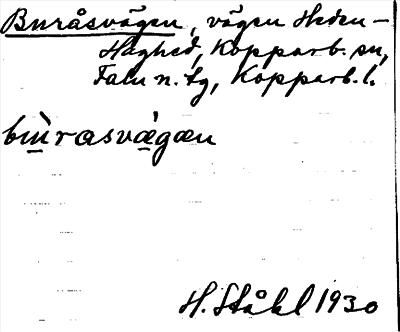 Buråsvägen, vägen Heden–
Haghed, Kopparb. sn,
Falu n. tg, Kopparb. l.
bùrasvágæn
H. Ståhl 1930